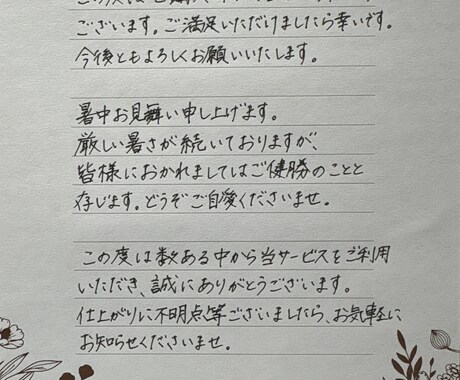 ございます。ご満足いただけましたら幸いです。
今後ともよろしくお願いいたします。
暑中お見舞い申し上げます。
厳しい暑さが続いておりますが、
皆様におかれましてはご健勝のことと
存じます。どうぞご自愛くださいませ。
この度は数ある中から当サービスをご利用
いただき、誠にありがとうございます。
仕上がりに不明点等ございましたら、お気軽に
お知らせくださいませ。